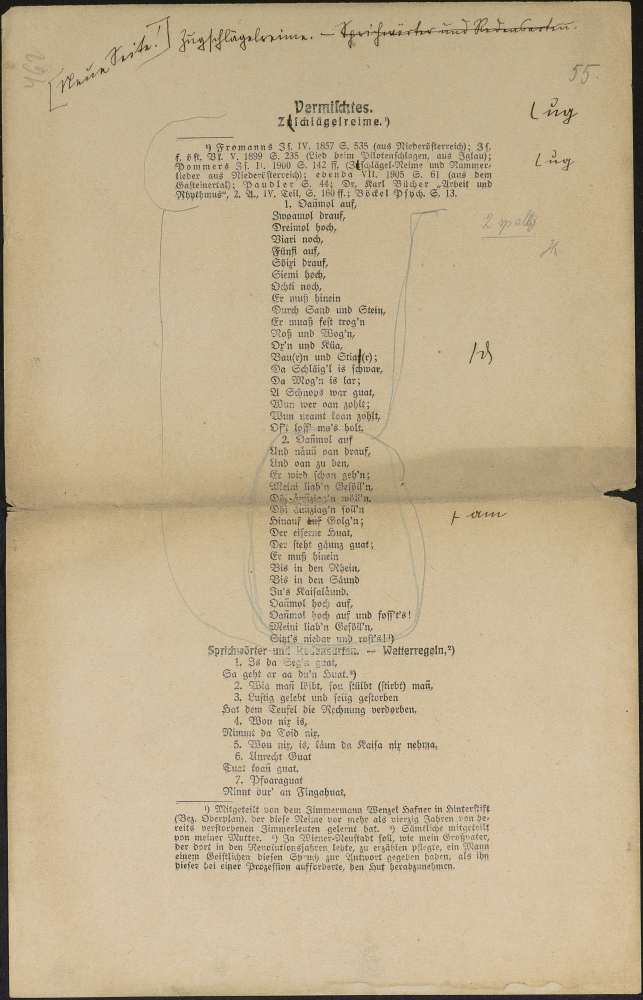 [Neue Seite!] Zugschlägelreime. – Sprichwörter und Redensarten.
460
55.
Vermischtes.
Zuschlägelreime.¹)
⌊ ug
¹) Fromanns Zf. IV. 1857 S. 535 (aus Niederösterreich); Zf.
f. öst. Vk. V. 1899 S. 235 (Lied beim Pilotenschlagen, aus Iglau);
Pommers Zf. II. 1900 S. 142 ff. (Zuschlägel-Reime und Rammer-
⌊ ug
lieder aus Niederösterreich); ebenda VII. 1905 S. 61 (aus dem
Gasteinertal); Paudler S. 44; Dr. Karl Bücher „Arbeit und
Rhythmus“, 2. A., IV. Teil, S. 160 ff.; Böckel Psych. S. 13.
1. Oañmol auf,
Zwoamol drauf,
2 spaltig
Dreimol hoch,
Viari noch,
Fünfi auf,
Söixi drauf,
Siemi hoch,
Ochti noch,
Er muß hinein
Durch Sand und Stein,
Er muaß fest trog'n
Roß und Wog'n,
Ox'n und Küa,
Bau(r)n und Stia(r);
Da Schläig'l is schwar,
Da Mog'n is lar;
A Schnops war guat,
Wun wer oan zohlt;
Wun neamt koan zohlt,
loss' ma's holt.
2. Oañmol auf
Und näuü oan drauf,
Und oan zu den,
Er wird schon geh'n;
Meini liab'n Gesöll'n,
soll'n
Hinauf auf Golg'n;
⊦ am
Der eiserne Huat,
Der steht gäunz guat;
Er muß hinein
Bis in den Rhein,
Bis in den Säund
In's Kaisaläund.
Oañmol hoch auf,
Oañmol hoch auf und foss't's!
Meini liab'n Gesöll'n,
Sitzt's niedar und rost's!¹)
Sprichwörter und Redensarten. — Wetterregeln.²)
1. Is da Seg'n guat,
Sa geht ar aa du'n Huat.³)
2. Wia mañ löbt, sou stülbt (stirbt) mañ,
3. Lustig gelebt und selig gestorben
Hat dem Teufel die Rechnung verdorben.
4. Wou nix is,
Nimmt da Toid nix,
5. Wou nix, is, läun da Kaisa nix nehma,
6. Unrecht Guat
Tuat koañ guat.
7. Pfoaraguat
Rinnt dur' an Fingahuat,
¹) Mitgeteilt von dem Zimmermann Wenzel Hafner in Hinterstift
(Bez. Oberplan), der diese Reime vor mehr als vierzig Jahren von be-
reits verstorbenen Zimmerleuten gelernt hat. ²) Sämtliche mitgeteilt
von meiner Mutter. ³) In Wiener-Neustadt soll, wie mein Großvater,
der dort in den Revolutionsjahren lebte, zu erzählen pflegte, ein Mann
einem Geistlichen diesen Spruch zur Antwort gegeben haben, als ihn
dieser bei einer Prozession aufforderte, den Hut herabzunehmen.